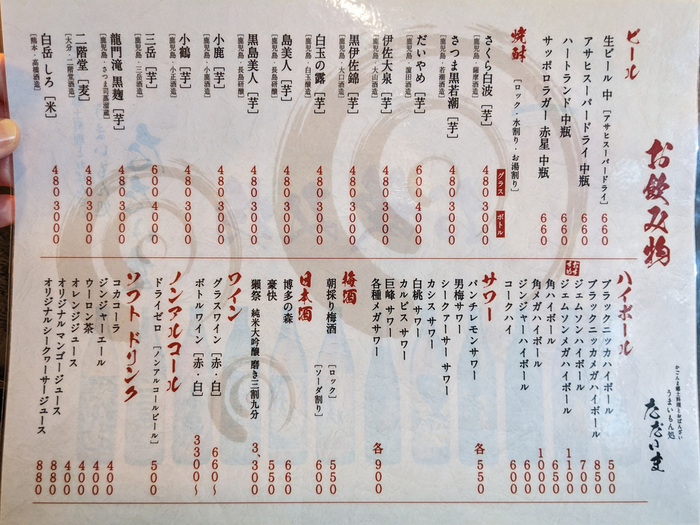 お飲み物
ビール
生ビール 中 [アサヒスーパードライ] 660
アサヒスーパードライ 中瓶 660
ハートランド 中瓶 660
サッポロラガー 赤星 中瓶 660
焼酎 [ロック・水割り・お湯割り] グラス ボトル
さくら白波 [芋] [鹿児島・薩摩酒造] 480 3000
さつま黒若潮 [芋] [鹿児島・若潮酒造] 480 3000
だいやめ [芋] [鹿児島・濵田酒造] 600 4000
伊佐大泉 [芋] [鹿児島・大山酒造] 480 3000
黒伊佐錦 [芋] [鹿児島・大口酒造] 480 3000
白玉の露 [芋] [鹿児島・白玉醸造] 480 3000
島美人 [芋] [鹿児島・長島研醸] 480 3000
黒島美人 [芋] [鹿児島・長島研醸] 480 3000
小鹿 [芋] [鹿児島・小鹿酒造] 480 3000
小鶴 [芋] [鹿児島・小正酒造] 480 3000
三岳 [芋] [鹿児島・三岳酒造] 600 4000
龍門滝 黒麹 [芋] [鹿児島・さつま司蒸溜蔵] 480 3000
二階堂 [麦] [大分・二階堂酒造] 480 3000
白岳 しろ [米] [熊本・高橋酒造] 480 3000
かごんま郷土料理とおばんざい
うまいもん処
ただいま
ハイボール
ブラックニッカハイボール 500
ブラックニッカメガハイボール 850
ジェムソンハイボール 700
ジェムソンメガハイボール 1100
角ハイボール 650
角メガハイボール 1000
ジンジャーハイボール 600
コークハイ 600
サワー
パンチレモンサワー
男梅サワー
シークァーサー サワー
カシス サワー
白桃 サワー
カルピス サワー
巨峰 サワー
各550
各種メガサワー 各900
梅酒
朝採り梅酒 [ロック] 550
[ソーダ割り] 600
日本酒
博多の森 660
豪快 550
獺祭 純米大吟醸 磨き三割九分 3,300
ワイン
グラスワイン [赤・白] 660〜
ボトルワイン [赤・白] 3300〜
ノンアルコール
ドライゼロ [ノンアルコールビール] 500
ソフトドリンク
コカコーラ 400
ジンジャーエール 400
ウーロン茶 400
オレンジジュース 400
オリジナル マンゴージュース 880
オリジナルシークヮーサージュース 880